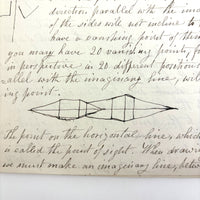 direction parallel with the ima
of the sides will not incline to t
have a vanishing point of them
you may have 20 vanishing points, fo
in perspective in 20 different position
allel with the imaginary line, will
ing point.
The point on the horizontal line, which
is called the point of sight. When drawin
we must make an imaginary line, betw